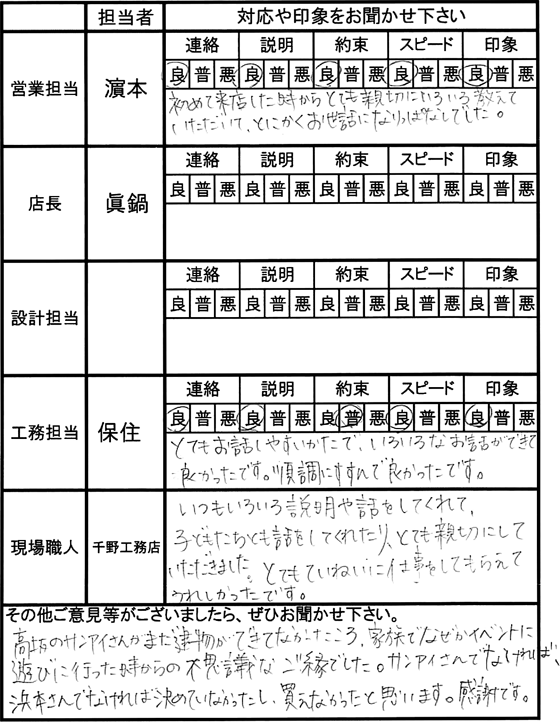 担当者 対応や印象をお聞かせ下さい
営業担当 濵本
連絡 説明 約束 スピード 印象
良 普 悪 良 普 悪 良 普 悪 良 普 悪 良 普 悪
初めて来店した時からとても親切にいろいろ教えて
いただいて、とにかくお世話になりっぱなしでした。
店長 眞鍋
連絡 説明 約束 スピード 印象
良 普 悪 良 普 悪 良 普 悪 良 普 悪 良 普 悪
設計担当
連絡 説明 約束 スピード 印象
良 普 悪 良 普 悪 良 普 悪 良 普 悪 良 普 悪
工務担当 保住
連絡 説明 約束 スピード 印象
良 普 悪 良 普 悪 良 普 悪 良 普 悪 良 普 悪
とてもお話しやすいかたで、いろいろなお話ができて
良かったです。順調にすすんで良かったです。
現場職人 千野工務店
いつもいろいろ説明や話をしてくれて、
子どもたちとも話をしてくれたり、とても親切にして
いただきました。とてもていねいに仕事をしてもらえて
うれしかったです。
その他ご意見等がございましたら、ぜひお聞かせ下さい。
高坂のサンアイさんがまだ建物ができてなかったころ、家族でなぜかイベントに
遊びに行った時からの不思議なご縁でした。サンアイさんでなければ、
浜本さんでなければ決めていなかったし、買えなかったと思います。感謝です。